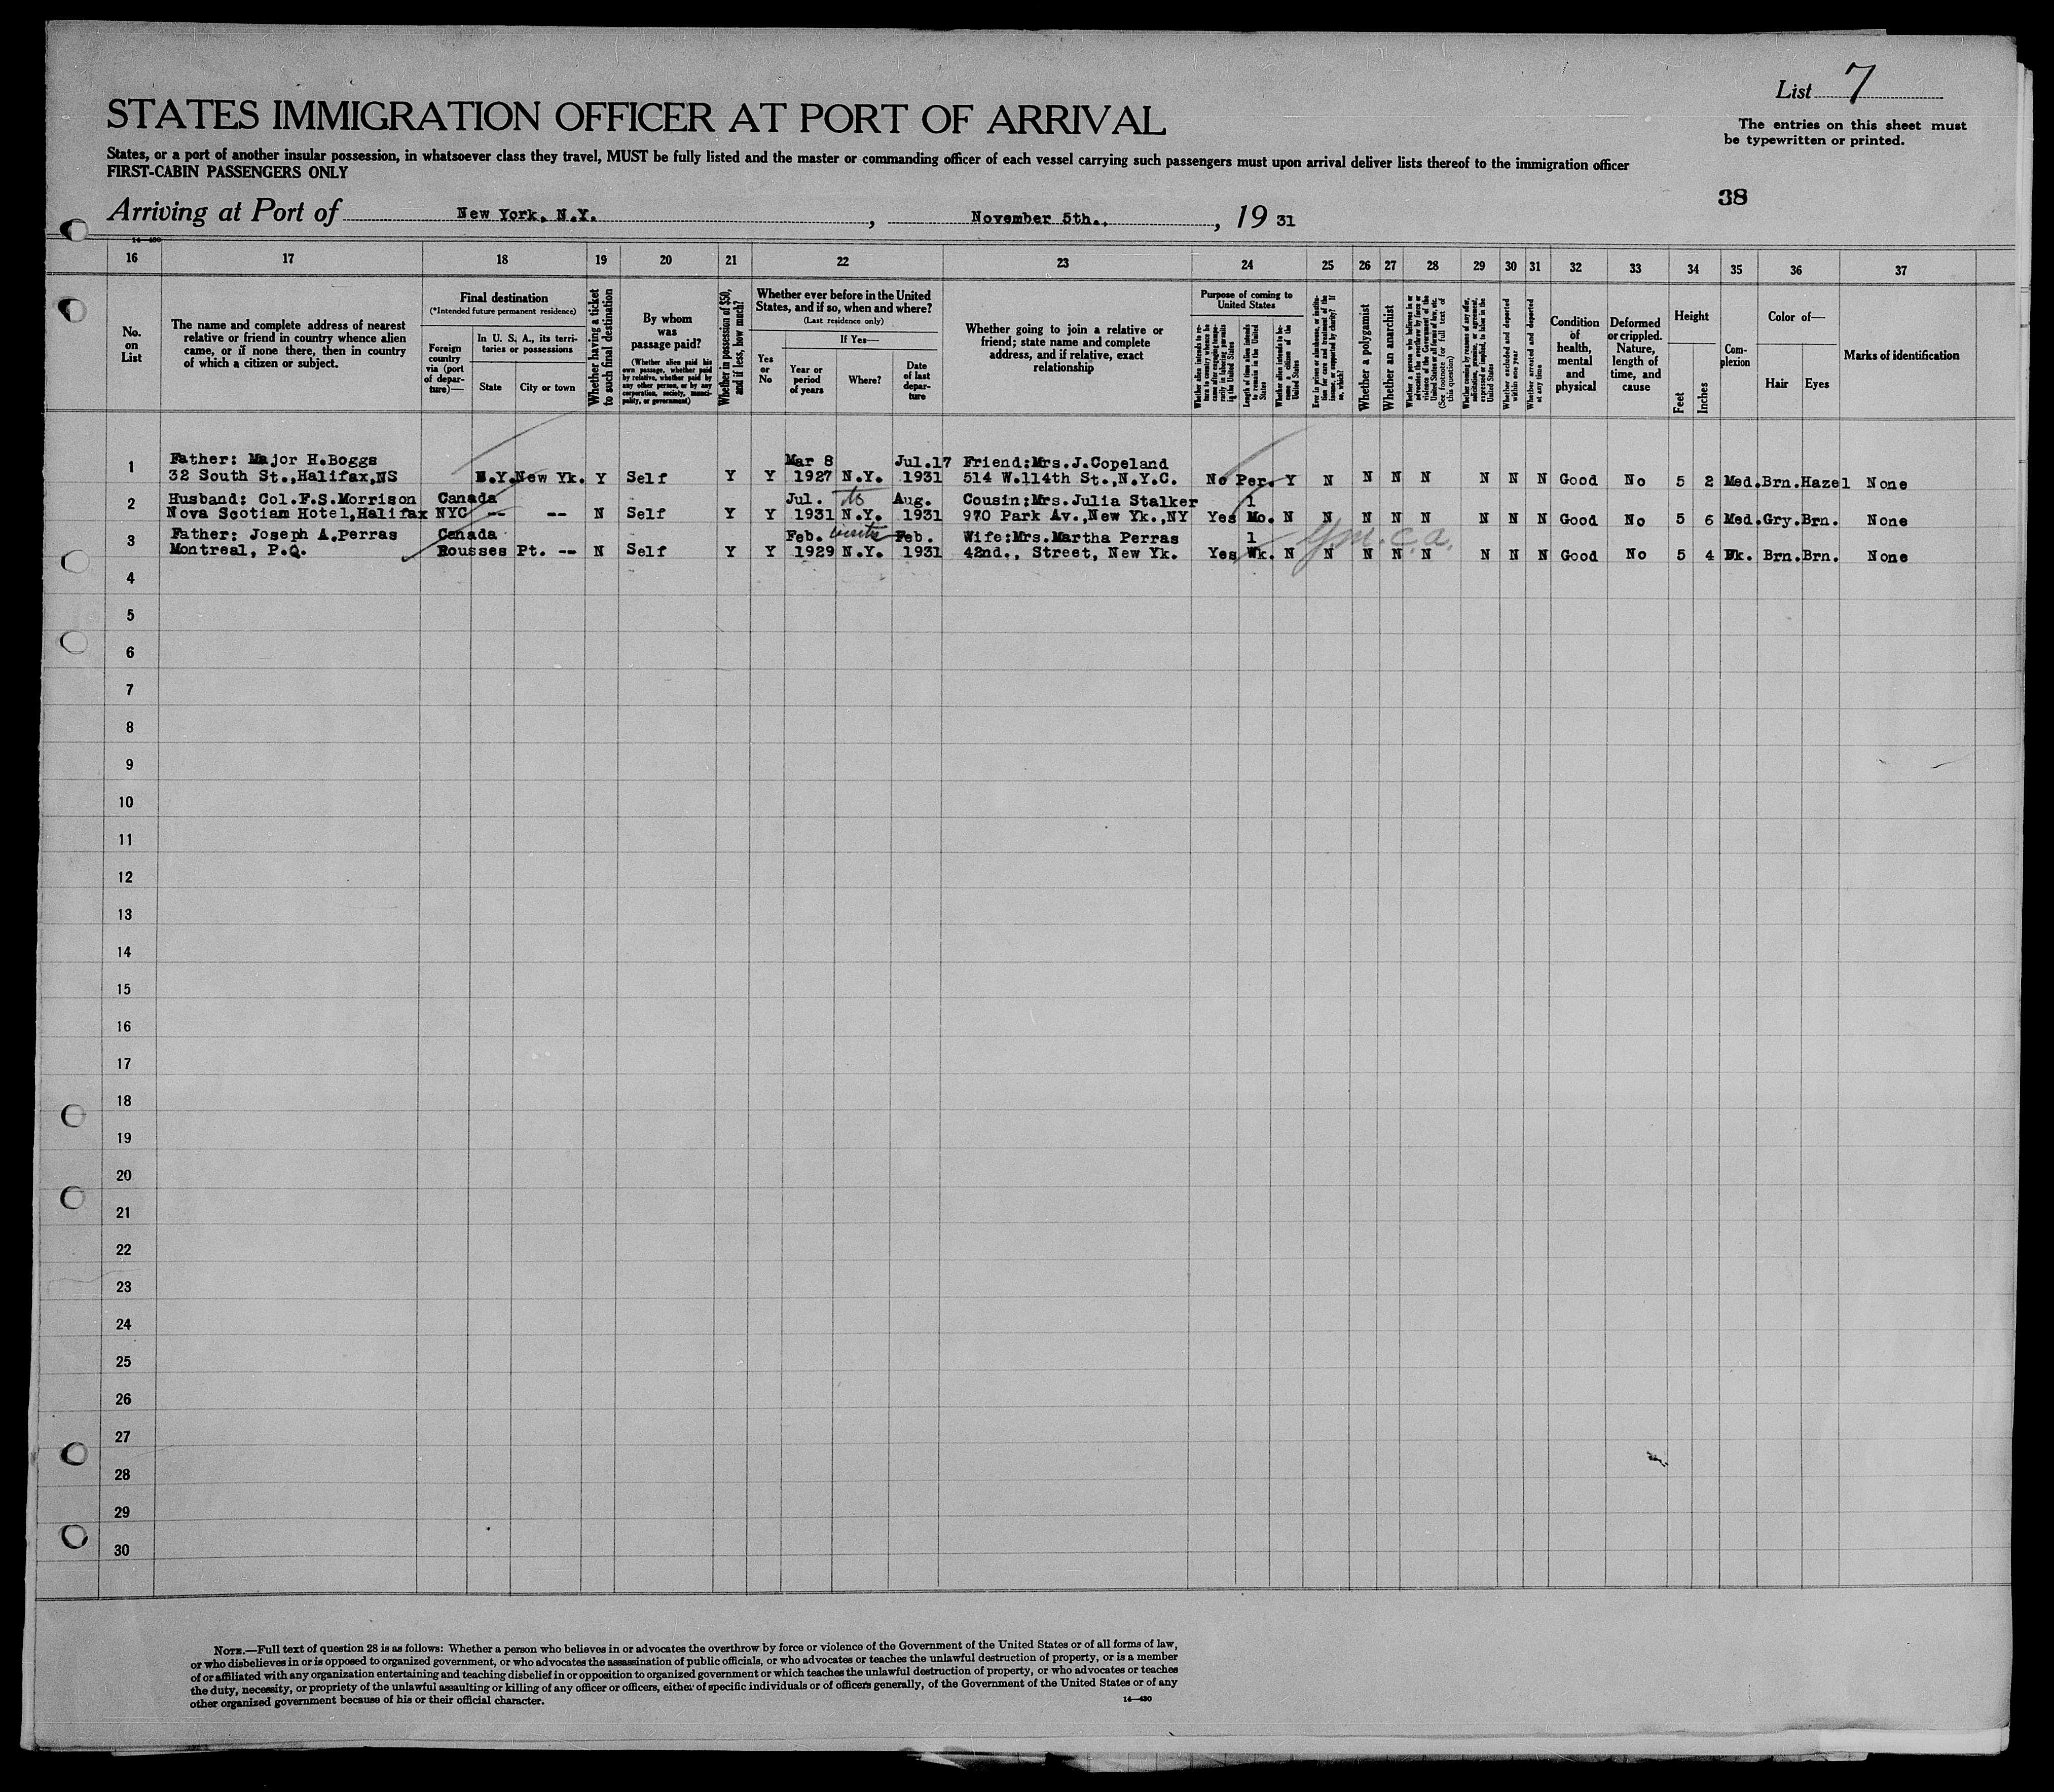 List 7
The entries on this sheet must
be typewritten or printed.
STATES IMMIGRATION OFFICER AT PORT OF ARRIVAL
States, or a port of another insular possession, in whatsoever class they travel, MUST be fully listed and the master or commanding officer of each vessel carrying such passengers must upon arrival deliver lists thereof to the immigration officer
FIRST-CABIN PASSENGERS ONLY
38
Arriving at Port of New York, N.Y. , November 5th., , 19 31
14—430
16 17 18 19 20 21 22 23 24 25 26 27 28 29 30 31 32 33 34 35 36 37
No.
on
List
The name and complete address of nearest
relative or friend in country whence alien
came, or if none there, then in country
of which a citizen or subject.
Final destination
(*Intended future permanent residence)
Foreign
country
via (port
of depar-
ture)—
In U. S. A., its terri-
tories or possessions
State
City or town
Whether having a ticket
to such final destination
By whom
was
passage paid?
(Whether alien paid his
own passage, whether paid
by relative, whether paid by
any other person, or by any
corporation, society, munici-
pality, or government)
Whether in possession of $50,
and if less, how much?
Whether ever before in the United
States, and if so, when and where?
(Last residence only)
Yes
or
No
If Yes—
Year or
period
of years
Where?
Date
of last
depar-
ture
Whether going to join a relative or
friend; state name and complete
address, and if relative, exact
relationship
Purpose of coming to
United States
Whether alien intends to re-
turn to country whence he
came after engaging tempo-
rarily in laboring pursuits
in the United States
Length of time alien intends
to remain in the United
States
Whether alien intends to be-
come a citizen of the
United States
Ever in prison or almshouse, or institu-
tion for care and treatment of the
insane, or supported by charity? If
so, which?
Whether a polygamist
Whether an anarchist
Whether a person who believes in or
advocates the overthrow by force or
violence of the Government of the
United States or all forms of law, etc.
(See footnote for full text of
this question)
Whether coming by reasons of any offer,
solicitation, promise, or agreement,
expressed or implied, to labor in the
United States
Whether excluded and deported
within one year
Whether arrested and deported
at any time
Condition
of
health,
mental
and
physical
Deformed
or crippled.
Nature,
length of
time, and
cause
Height
Feet
Inches
Com-
plexion
Color of—
Hair
Eyes
Marks of identification
Father: Major H.Boggs Mar 8 Jul.17 Friend:Mrs.J.Copeland
1 32 South St.,Halifax,NS N.Y.New Yk. Y Self Y Y 1927 N.Y. 1931 514 W.114th St.,N.Y.C. No Per. Y N N N N N N N Good No 5 2 Med.Brn.Hazel None
Husband: Col.F.S.Morrison Canada Jul. to Aug. Cousin:Mrs.Julia Stalker 1
2 Nova Scotian Hotel,Halifax NYC -- -- N Self Y Y 1931 N.Y. 1931 970 Park Av.,New Yk.,NY Yes Mo. N N N N N N N N Good No 5 6 Med.Gry.Brn. None
Father: Joseph A.Perras Canada Feb. visits Feb. Wife:Mrs.Martha Perras 1 Y.m.c.a.
3 Montreal, P.Q. Rousses Pt. -- N Self Y Y 1929 N.Y. 1931 42nd., Street, New Yk. Yes Wk. N N N N N N N N Good No 5 4 Dk. Brn.Brn. None
4
5
6
7
8
9
10
11
12
13
14
15
16
17
18
19
20
21
22
23
24
25
26
27
28
29
30
NOTE.—Full text of question 28 is as follows: Whether a person who believes in or advocates the overthrow by force or violence of the Government of the United States or of all forms of law,
or who disbelieves in or is opposed to organized government, or who advocates the assassination of public officials, or who advocates or teaches the unlawful destruction of property, or is a member
of or affiliated with any organization entertaining and teaching disbelief in or opposition to organized government or which teaches the unlawful destruction of property, or who advocates or teaches
the duty, necessity, or propriety of the unlawful assaulting or killing of any officer or officers, either of specific individuals or of officers generally, of the Government of the United States or of any
other organized government because of his or their official character.
14—430